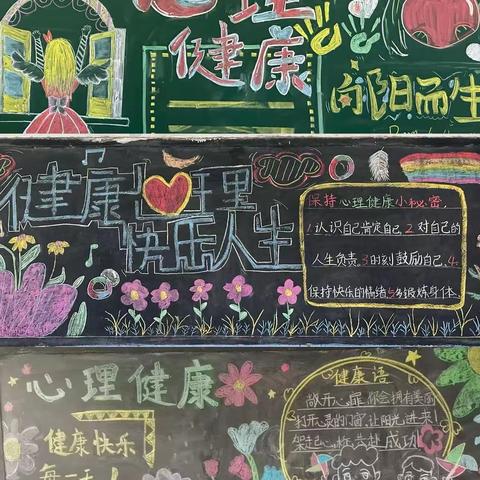 心理
健康
向阳而生
健康心理
快乐人生
保持心理健康小秘密.
1.认识自己肯定自己 2.对自己的
人生负责.3时刻鼓励自己.4.
保持快乐的情绪 5多锻炼身体.
心理健康
健康快乐
每一天
健康语
敞开心扉
打开心灵的门窗,让阳光进来!
成功